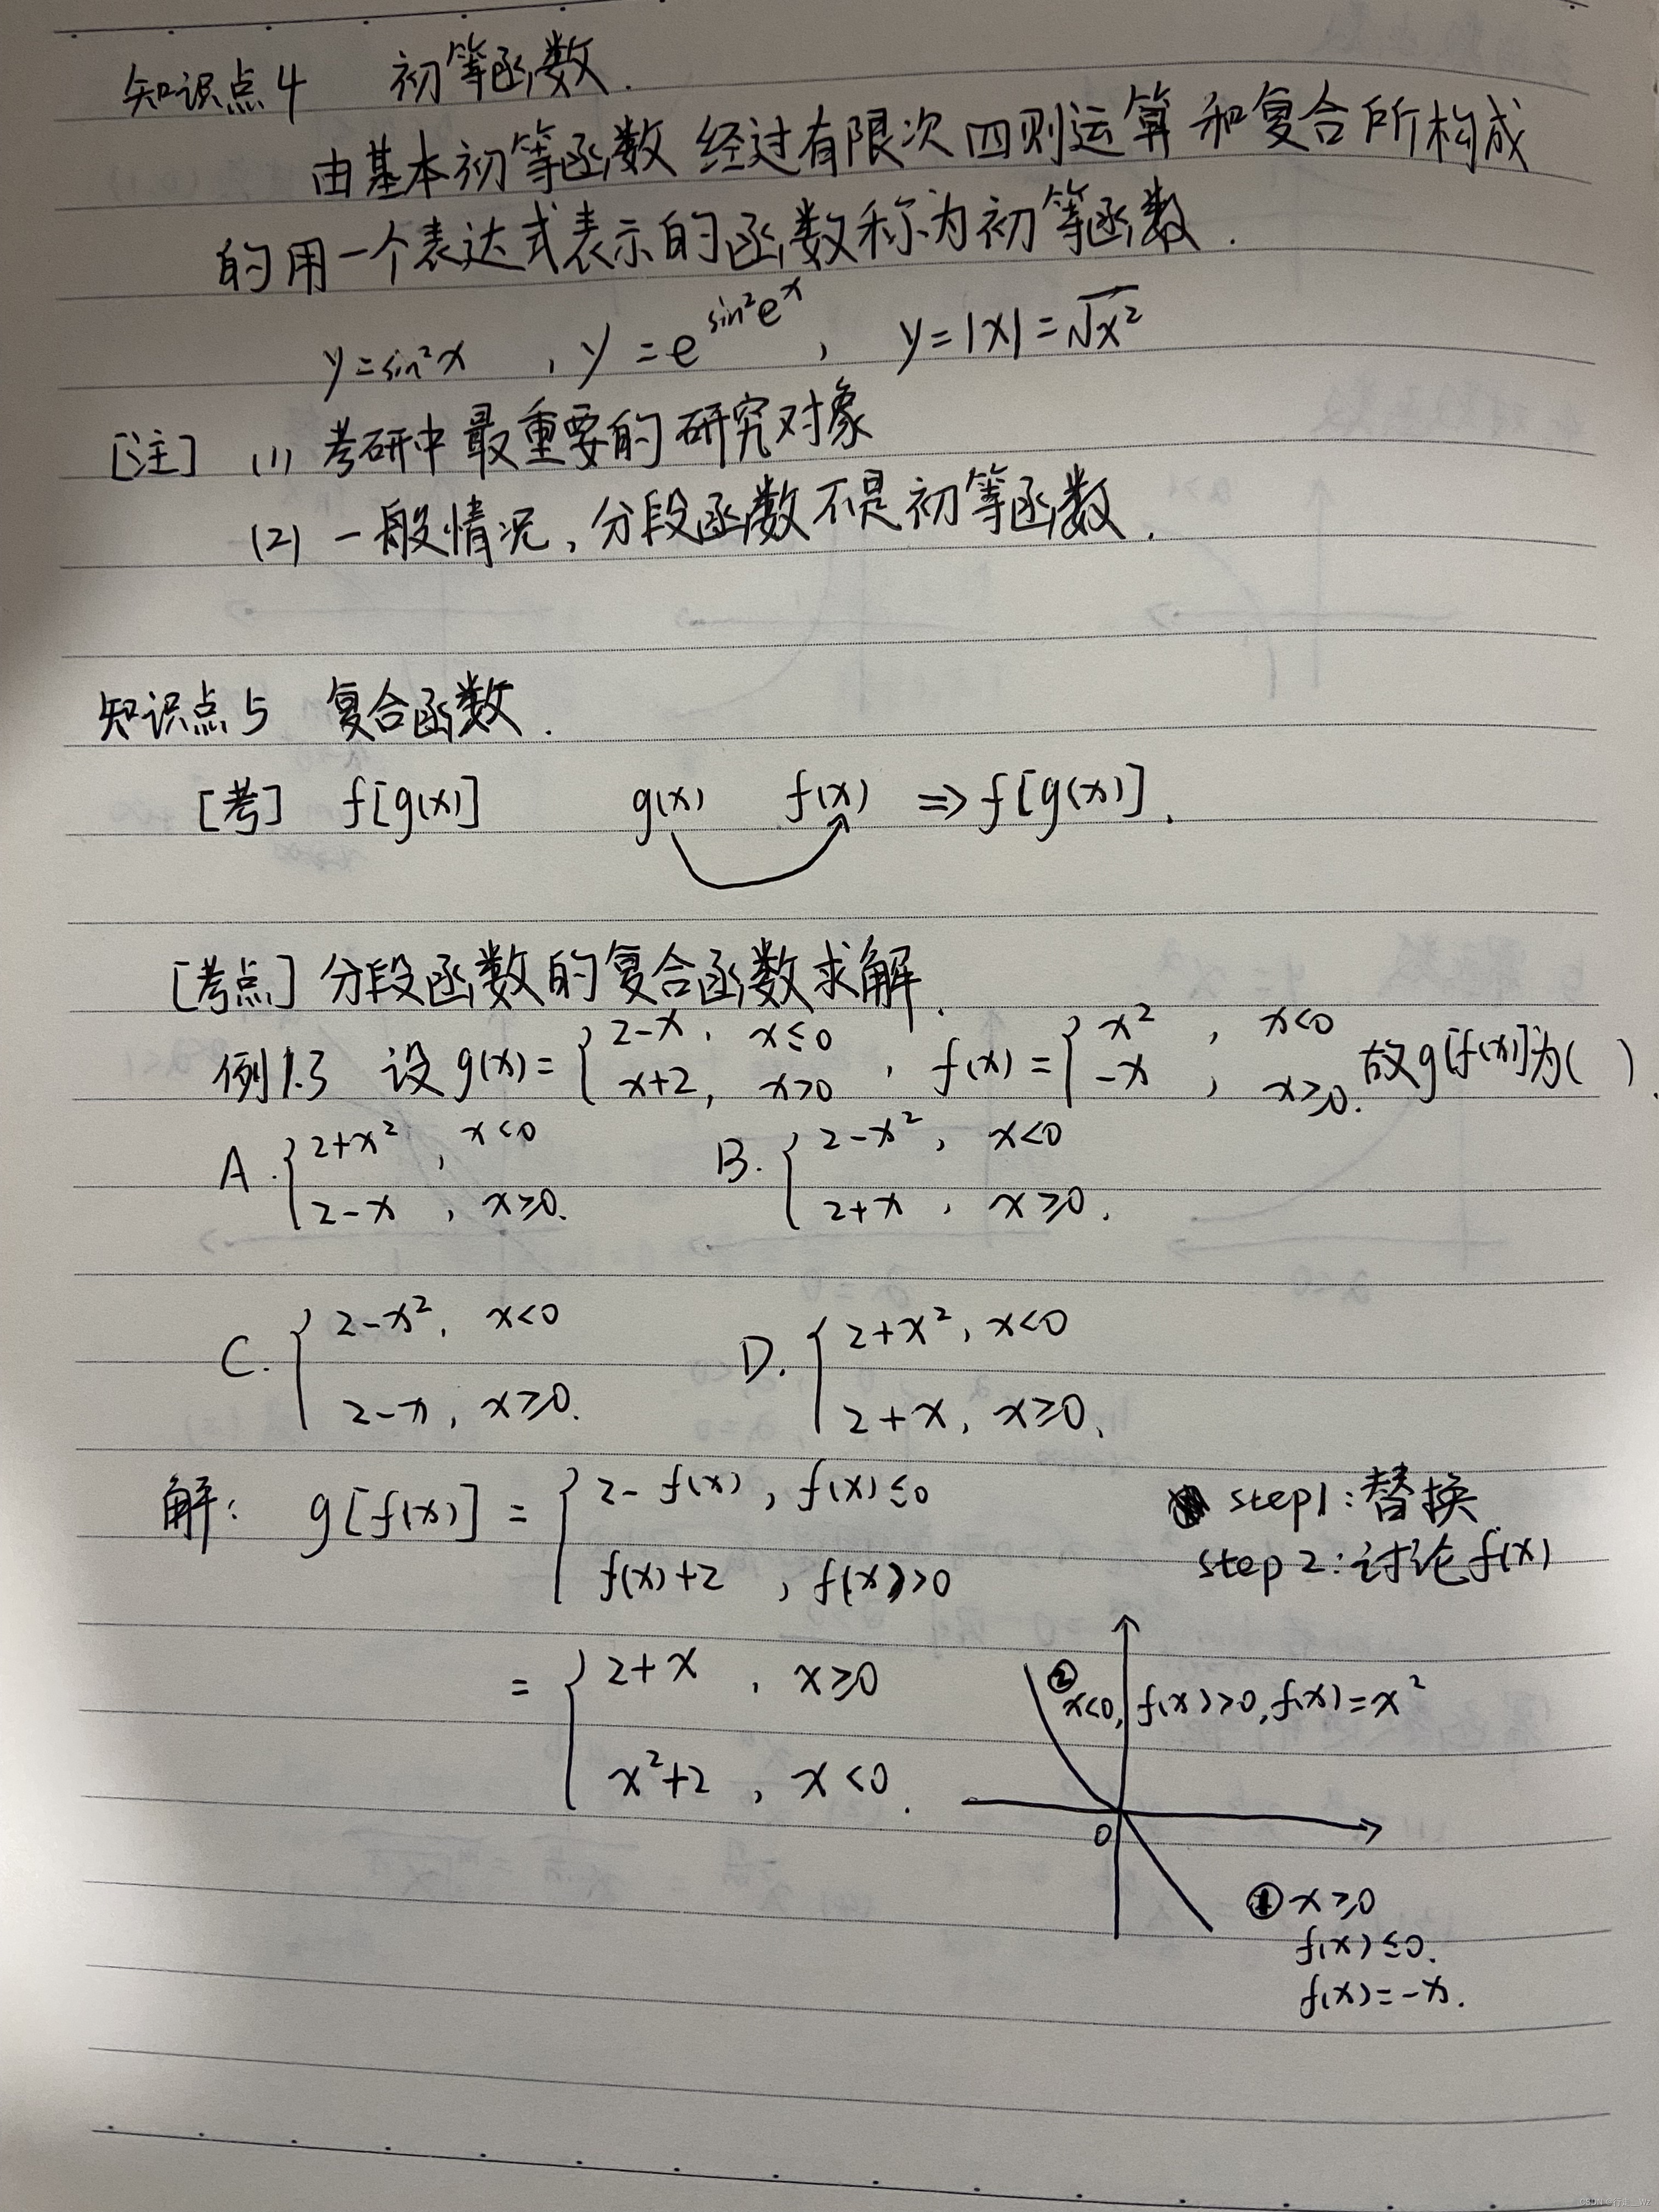 知识点4 初等函数.
由基本初等函数经过有限次四则运算和复合所构成
的用一个表达式表示的函数称为初等函数.
y=sin²x , y=e^{sin²e^x} , y=|x|=√x²
[注] (1) 考研中最重要的研究对象
(2) 一般情况,分段函数不是初等函数.
知识点5 复合函数.
[考] f[g(x)] g(x) f(x) ⇒ f[g(x)].
[考点] 分段函数的复合函数求解.
例1.3 设g(x)={2-x, x≤0; x+2, x>0 , f(x)={x², x<0; -x, x≥0. 故g[f(x)]为( ).
A. {2+x², x<0; 2-x, x≥0. B. {2-x², x<0; 2+x, x≥0.
C. {2-x², x<0; 2-x, x≥0. D. {2+x², x<0; 2+x, x≥0.
解: g[f(x)] = {2-f(x), f(x)≤0; f(x)+2, f(x)>0
step1:替换
step2:讨论f(x)
= {2+x, x≥0; x²+2, x<0.
② x<0, f(x)>0, f(x)=x²
0
① x≥0
f(x)≤0.
f(x)=-x.